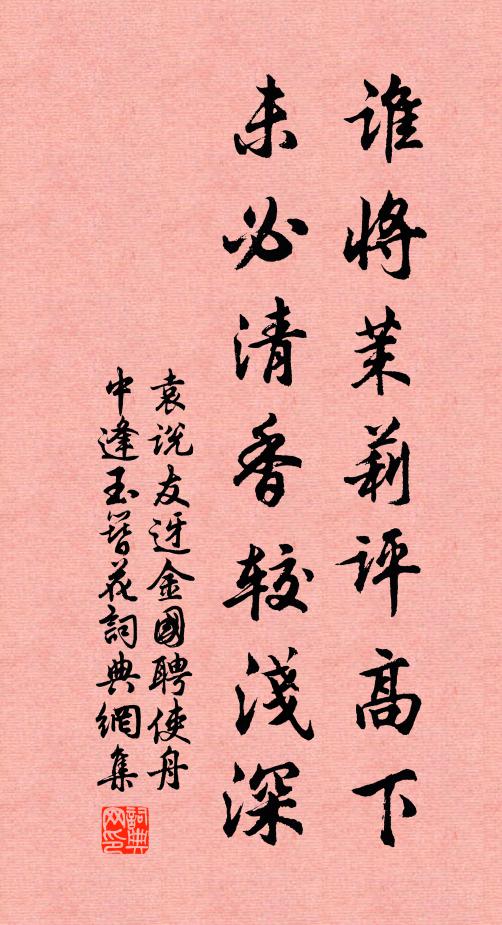 谁将茉莉评高下
未必清香较淺深
袁说友迓金國聘使舟
中逢玉簪花詞典網集
詞典网印